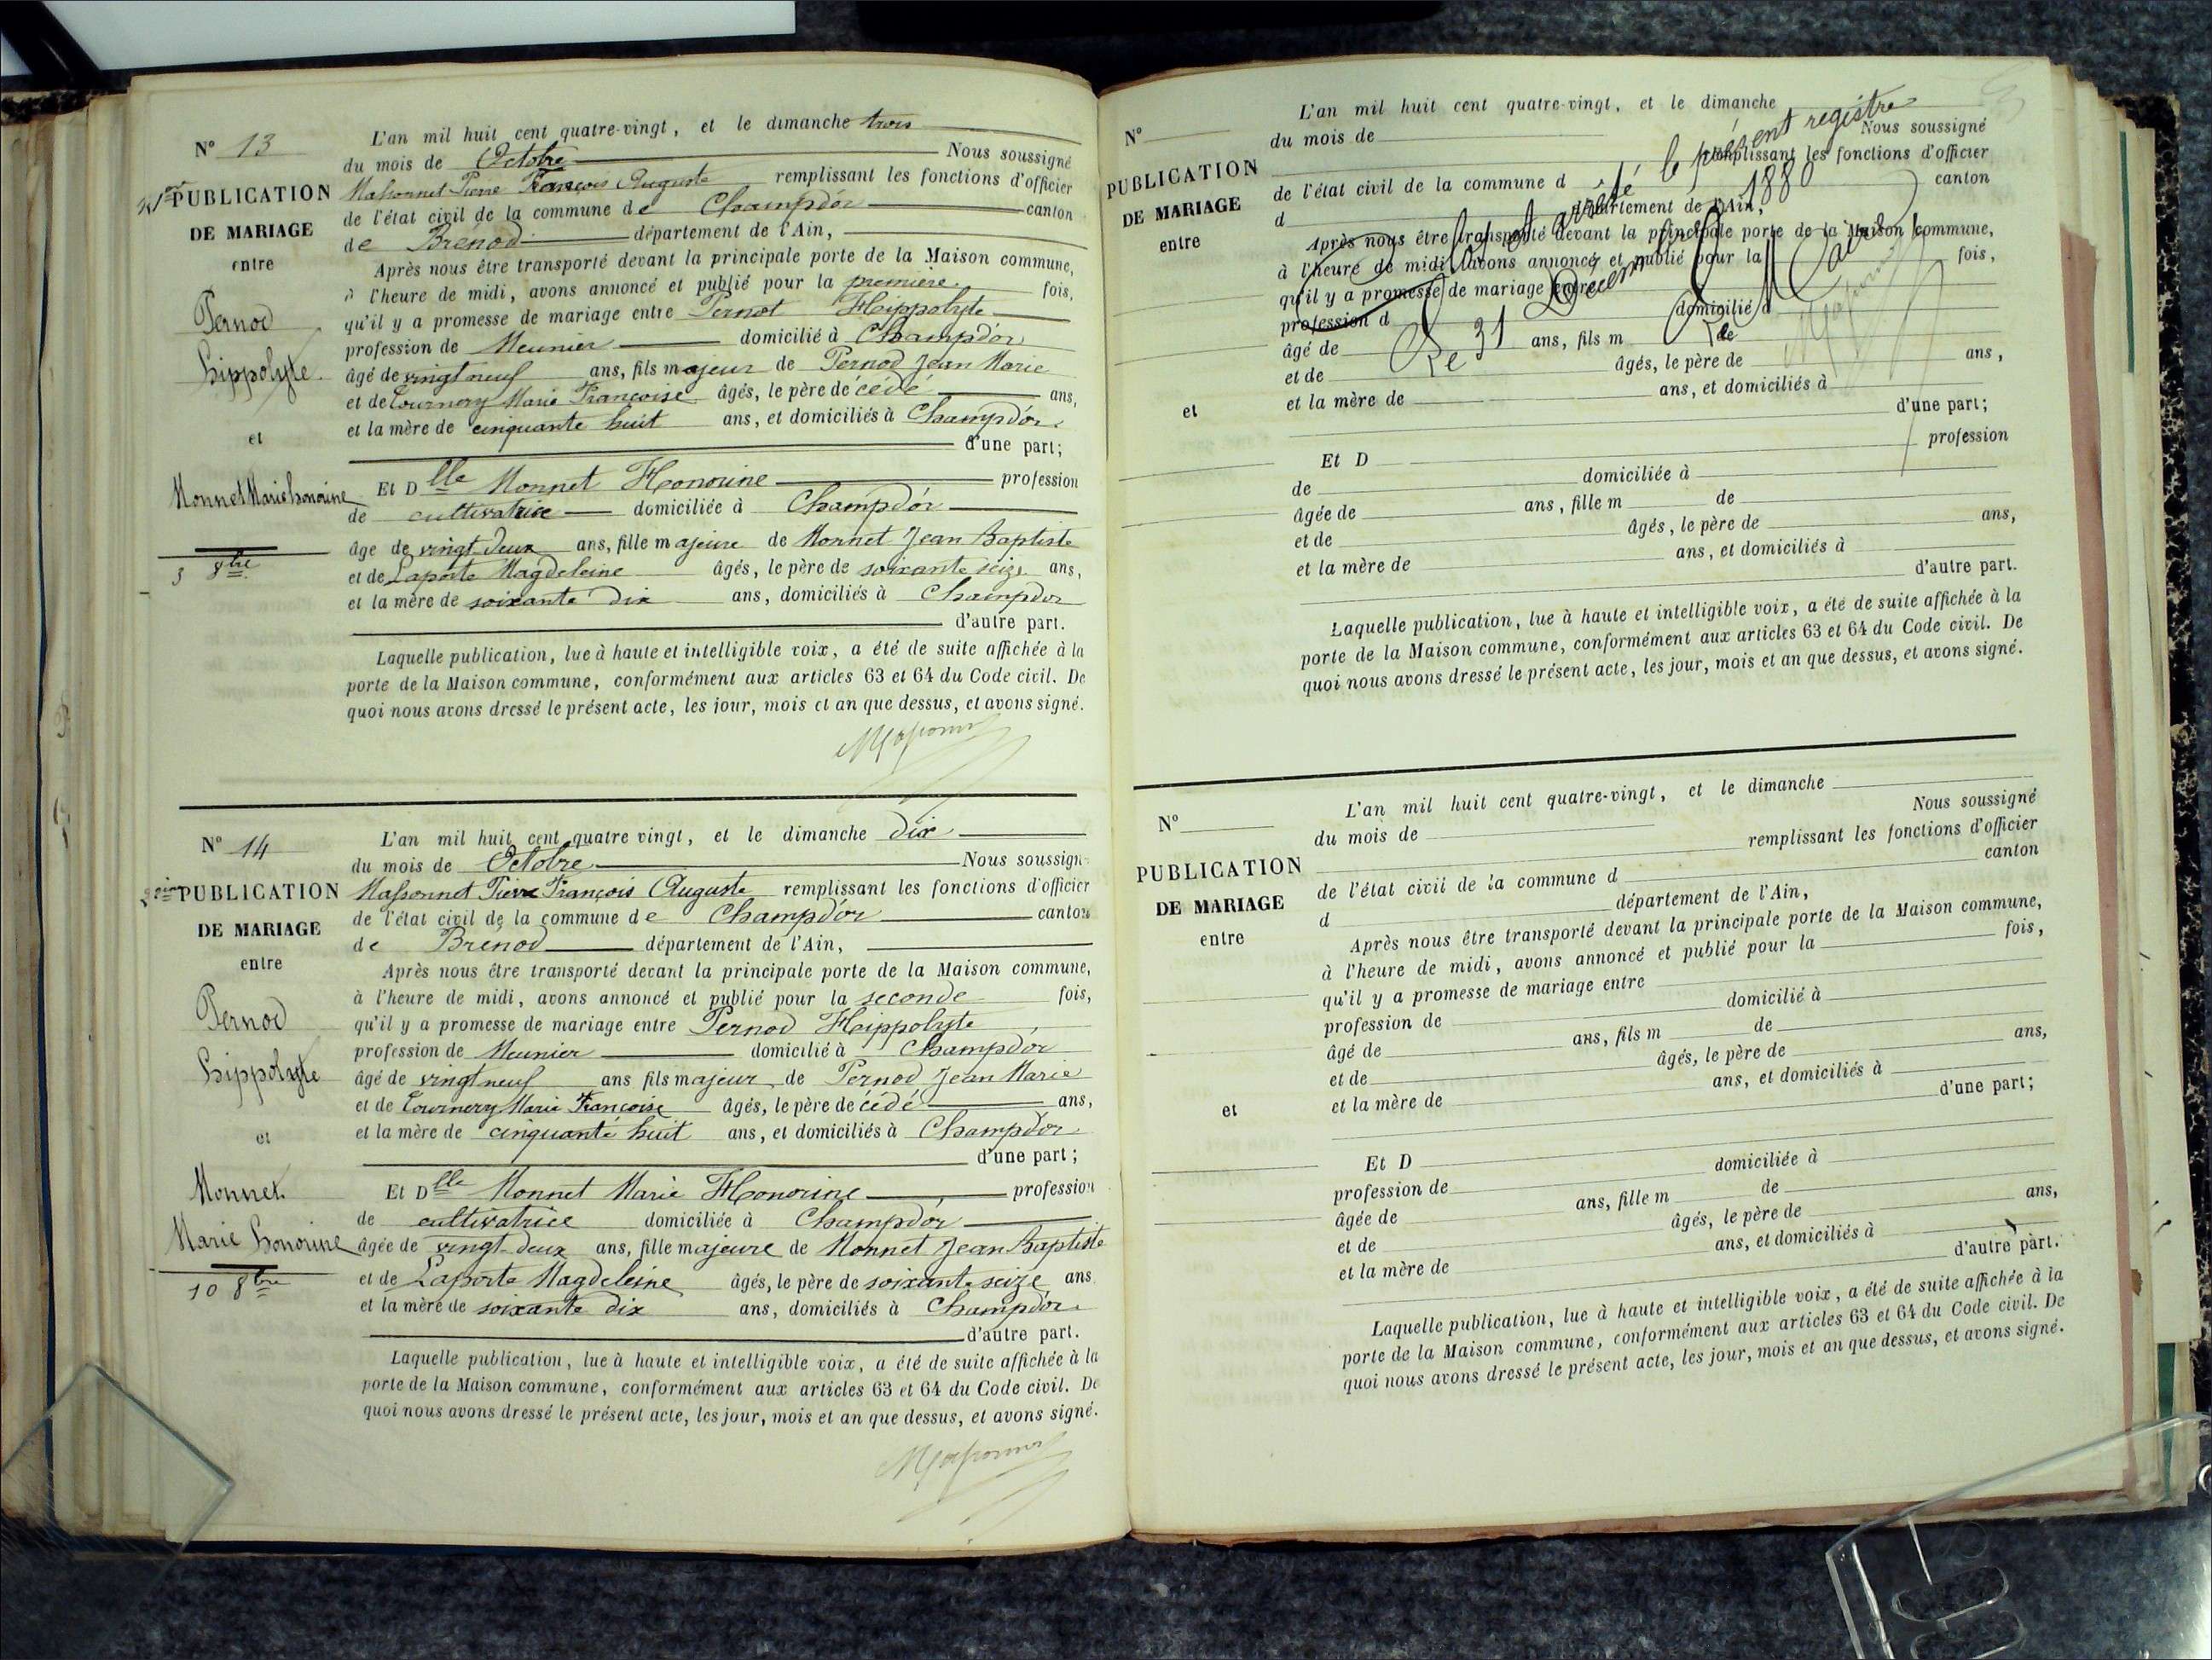 N° 13
1ère PUBLICATION
DE MARIAGE
entre
Pernod
hippolyte
et
Monnet Marie honorine
3 8bre
L'an mil huit cent quatre-vingt, et le dimanche trois
du mois de Octobre Nous soussigné
Massonnet Pierre François Auguste remplissant les fonctions d'officier
de l'état civil de la commune de Champdor canton
de Brénod département de l'Ain,
Après nous être transporté devant la principale porte de la Maison commune,
à l'heure de midi, avons annoncé et publié pour la première fois,
qu'il y a promesse de mariage entre Pernot Hippolyte
profession de Meunier domicilié à Champdor
âgé de vingt neuf ans, fils majeur de Pernod Jean Marie
et de Tournery Marie Françoise âgés, le père de cédé ans,
et la mère de cinquante huit ans, et domiciliés à Champdor
d'une part;
Et Dlle Monnet Honorine profession
de cultivatrice domiciliée à Champdor
âge de vingt deux ans, fille majeure de Monnet Jean Baptiste
et de Laporte Magdeleine âgés, le père de soixante seize ans,
et la mère de soixante dix ans, domiciliés à Champdor
d'autre part.
Laquelle publication, lue à haute et intelligible voix, a été de suite affichée à la
porte de la Maison commune, conformément aux articles 63 et 64 du Code civil. De
quoi nous avons dressé le présent acte, les jour, mois et an que dessus, et avons signé.
Massonnet
N° 14
2ème PUBLICATION
DE MARIAGE
entre
Pernod
hippolyte
et
Monnet
Marie honorine
10 8bre
L'an mil huit cent quatre vingt, et le dimanche dix
du mois de Octobre Nous soussign
Massonnet Pierre François Auguste remplissant les fonctions d'officier
de l'état civil de la commune de Champdor canton
de Brénod département de l'Ain,
Après nous être transporté devant la principale porte de la Maison commune,
à l'heure de midi, avons annoncé et publié pour la seconde fois,
qu'il y a promesse de mariage entre Pernod Hippolyte
profession de Meunier domicilié à Champdor
âgé de vingt neuf ans fils majeur de Pernod Jean Marie
et de Tournery Marie Françoise âgés, le père de cédé ans,
et la mère de cinquante huit ans, et domiciliés à Champdor
d'une part;
Et Dlle Monnet Marie Honorine profession
de cultivatrice domiciliée à Champdor
âgée de vingt-deux ans, fille majeure de Monnet Jean Baptiste
et de Laporte Magdeleine âgés, le père de soixante seize ans
et la mère de soixante dix ans, domiciliés à Champdor
d'autre part.
Laquelle publication, lue à haute et intelligible voix, a été de suite affichée à la
porte de la Maison commune, conformément aux articles 63 et 64 du Code civil. De
quoi nous avons dressé le présent acte, les jour, mois et an que dessus, et avons signé.
Massonnet
N°
PUBLICATION
DE MARIAGE
entre
et
L'an mil huit cent quatre-vingt, et le dimanche
du mois de Nous soussigné
remplissant les fonctions d'officier
de l'état civil de la commune d canton
d département de l'Ain,
Après nous être transporté devant la principale porte de la Maison commune,
à l'heure de midi, avons annoncé et publié pour la fois,
qu'il y a promesse de mariage entre
profession d domicilié à
âgé de ans, fils m de
et de âgés, le père de ans,
et la mère de ans, et domiciliés à
d'une part;
Et D profession
de domiciliée à
âgée de ans, fille m de
et de âgés, le père de ans,
et la mère de ans, et domiciliés à
d'autre part.
Laquelle publication, lue à haute et intelligible voix, a été de suite affichée à la
porte de la Maison commune, conformément aux articles 63 et 64 du Code civil. De
quoi nous avons dressé le présent acte, les jour, mois et an que dessus, et avons signé.
Clos et arrêté le présent registre
Le 31 Décembre 1880
Le Maire
Massonnet
N°
PUBLICATION
DE MARIAGE
entre
et
L'an mil huit cent quatre-vingt, et le dimanche
du mois de Nous soussigné
remplissant les fonctions d'officier
de l'état civil de la commune d canton
d département de l'Ain,
Après nous être transporté devant la principale porte de la Maison commune,
à l'heure de midi, avons annoncé et publié pour la fois,
qu'il y a promesse de mariage entre
profession de domicilié à
âgé de ans, fils m de
et de âgés, le père de ans,
et la mère de ans, et domiciliés à
d'une part;
Et D
profession de domiciliée à
âgée de ans, fille m de
et de âgés, le père de ans,
et la mère de ans, et domiciliés à
d'autre part.
Laquelle publication, lue à haute et intelligible voix, a été de suite affichée à la
porte de la Maison commune, conformément aux articles 63 et 64 du Code civil. De
quoi nous avons dressé le présent acte, les jour, mois et an que dessus, et avons signé.